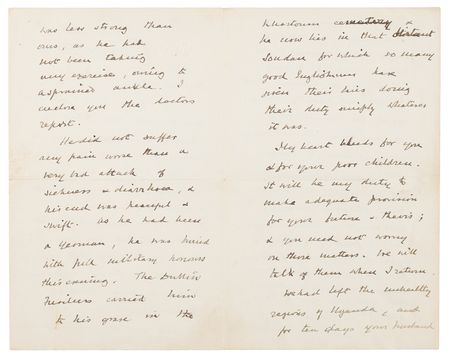 was less strong than
ours, as he had
not been taking
very exercise, owing to
a sprained ankle. I
enclose you the doctors
report.
He did not suffer
any pain worse than a
very bad attack of
sickness & diarrhoea, &
his end was peaceful &
swift. As he had been
a Yeoman, he was buried
with full military honours
this evening. The Dublin
Fusiliers carried him
to his grave in the
Khartoum cemetery &
he now lies in that distant
Soudan for which so many
good Englishmen have
given their lives doing
their duty simply whatever
it was.
My heart bleeds for you
& for your poor children.
It will be my duty to
make adequate provision
for your future & theirs;
& you need not worry
on those matters. We will
talk of them when I return.
We had left the unhealthy
regions of Uganda, and
for ten days your husband